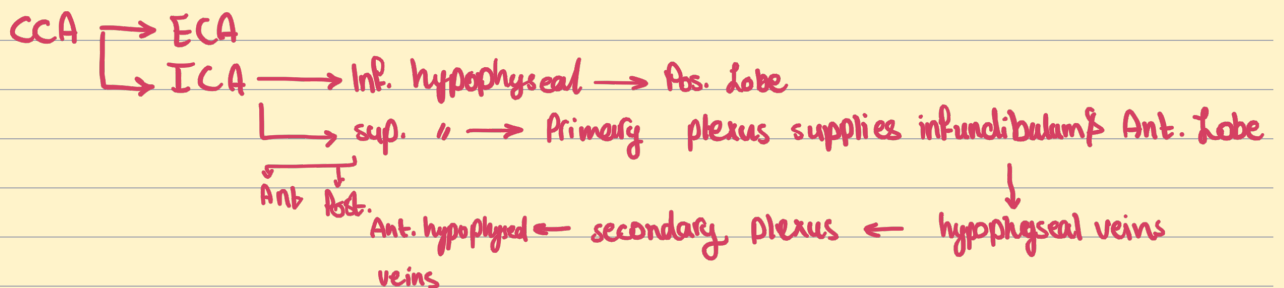 CCA → ECA
→ ICA → Inf. hypophyseal → Pos. Lobe
→ sup. " → Primary plexus supplies infundibulam & Ant. Lobe
Ant Post.
Ant. hypophyseal ← secondary plexus ← hypophyseal veins
veins